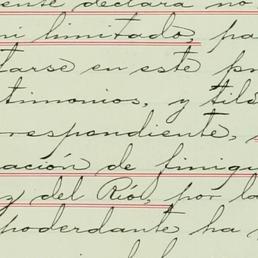 ente declara no
ni limitado, pa
larse en este pr
timonios, y tilá
respondiente,
ación de finiqu
y del Río, por la
poderdante ha